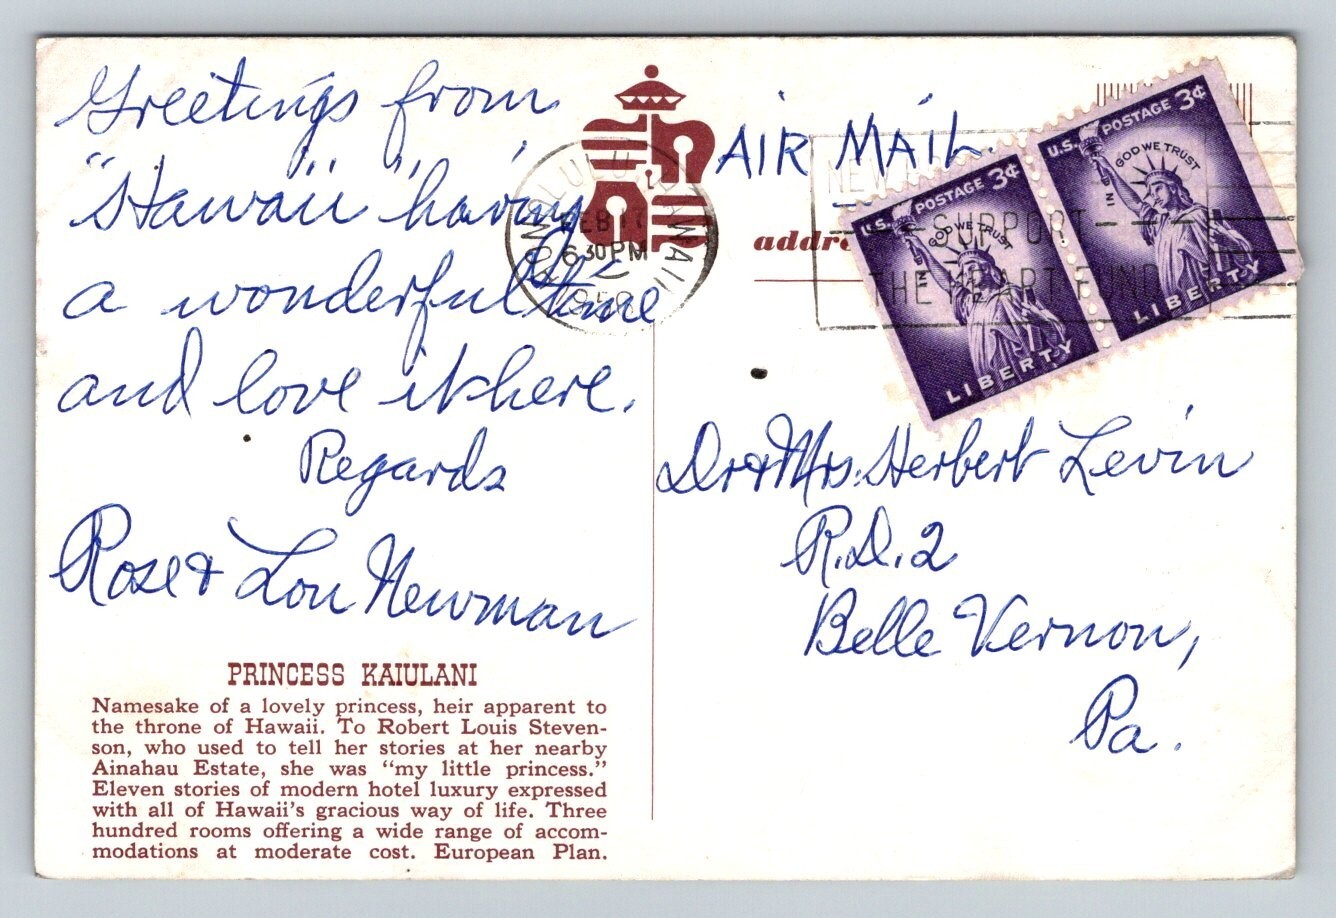 Greetings from
"Hawaii" having
a wonderful time
and love it here.
Regards
Rose & Lou Newman
PRINCESS KAIULANI
Namesake of a lovely princess, heir apparent to
the throne of Hawaii. To Robert Louis Steven-
son, who used to tell her stories at her nearby
Ainahau Estate, she was "my little princess."
Eleven stories of modern hotel luxury expressed
with all of Hawaii's gracious way of life. Three
hundred rooms offering a wide range of accom-
modations at moderate cost. European Plan.
HONOLULU HAWAII
FEB
630 PM
AIR MAIL.
addre
SUPPORT
THE HEART FUND
U.S. POSTAGE 3¢
IN GOD WE TRUST
LIBERTY
U.S. POSTAGE 3¢
IN GOD WE TRUST
LIBERTY
Dr & Mrs. Herbert Levin
R.D. 2
Belle Vernon,
Pa.